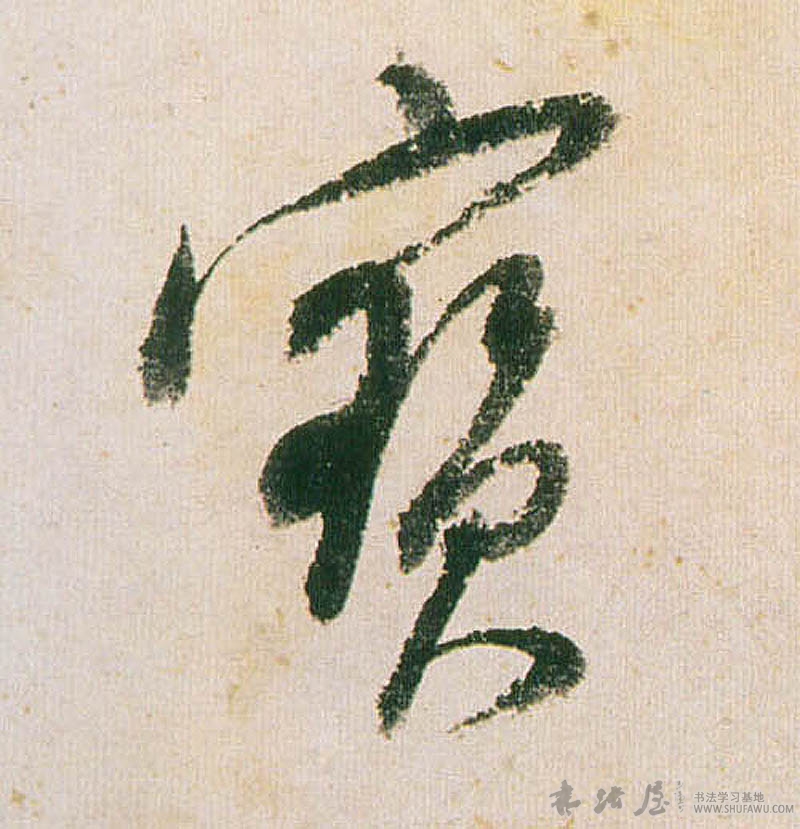 寶
书法屋 书法学习基地
WWW.SHUFAWU.COM